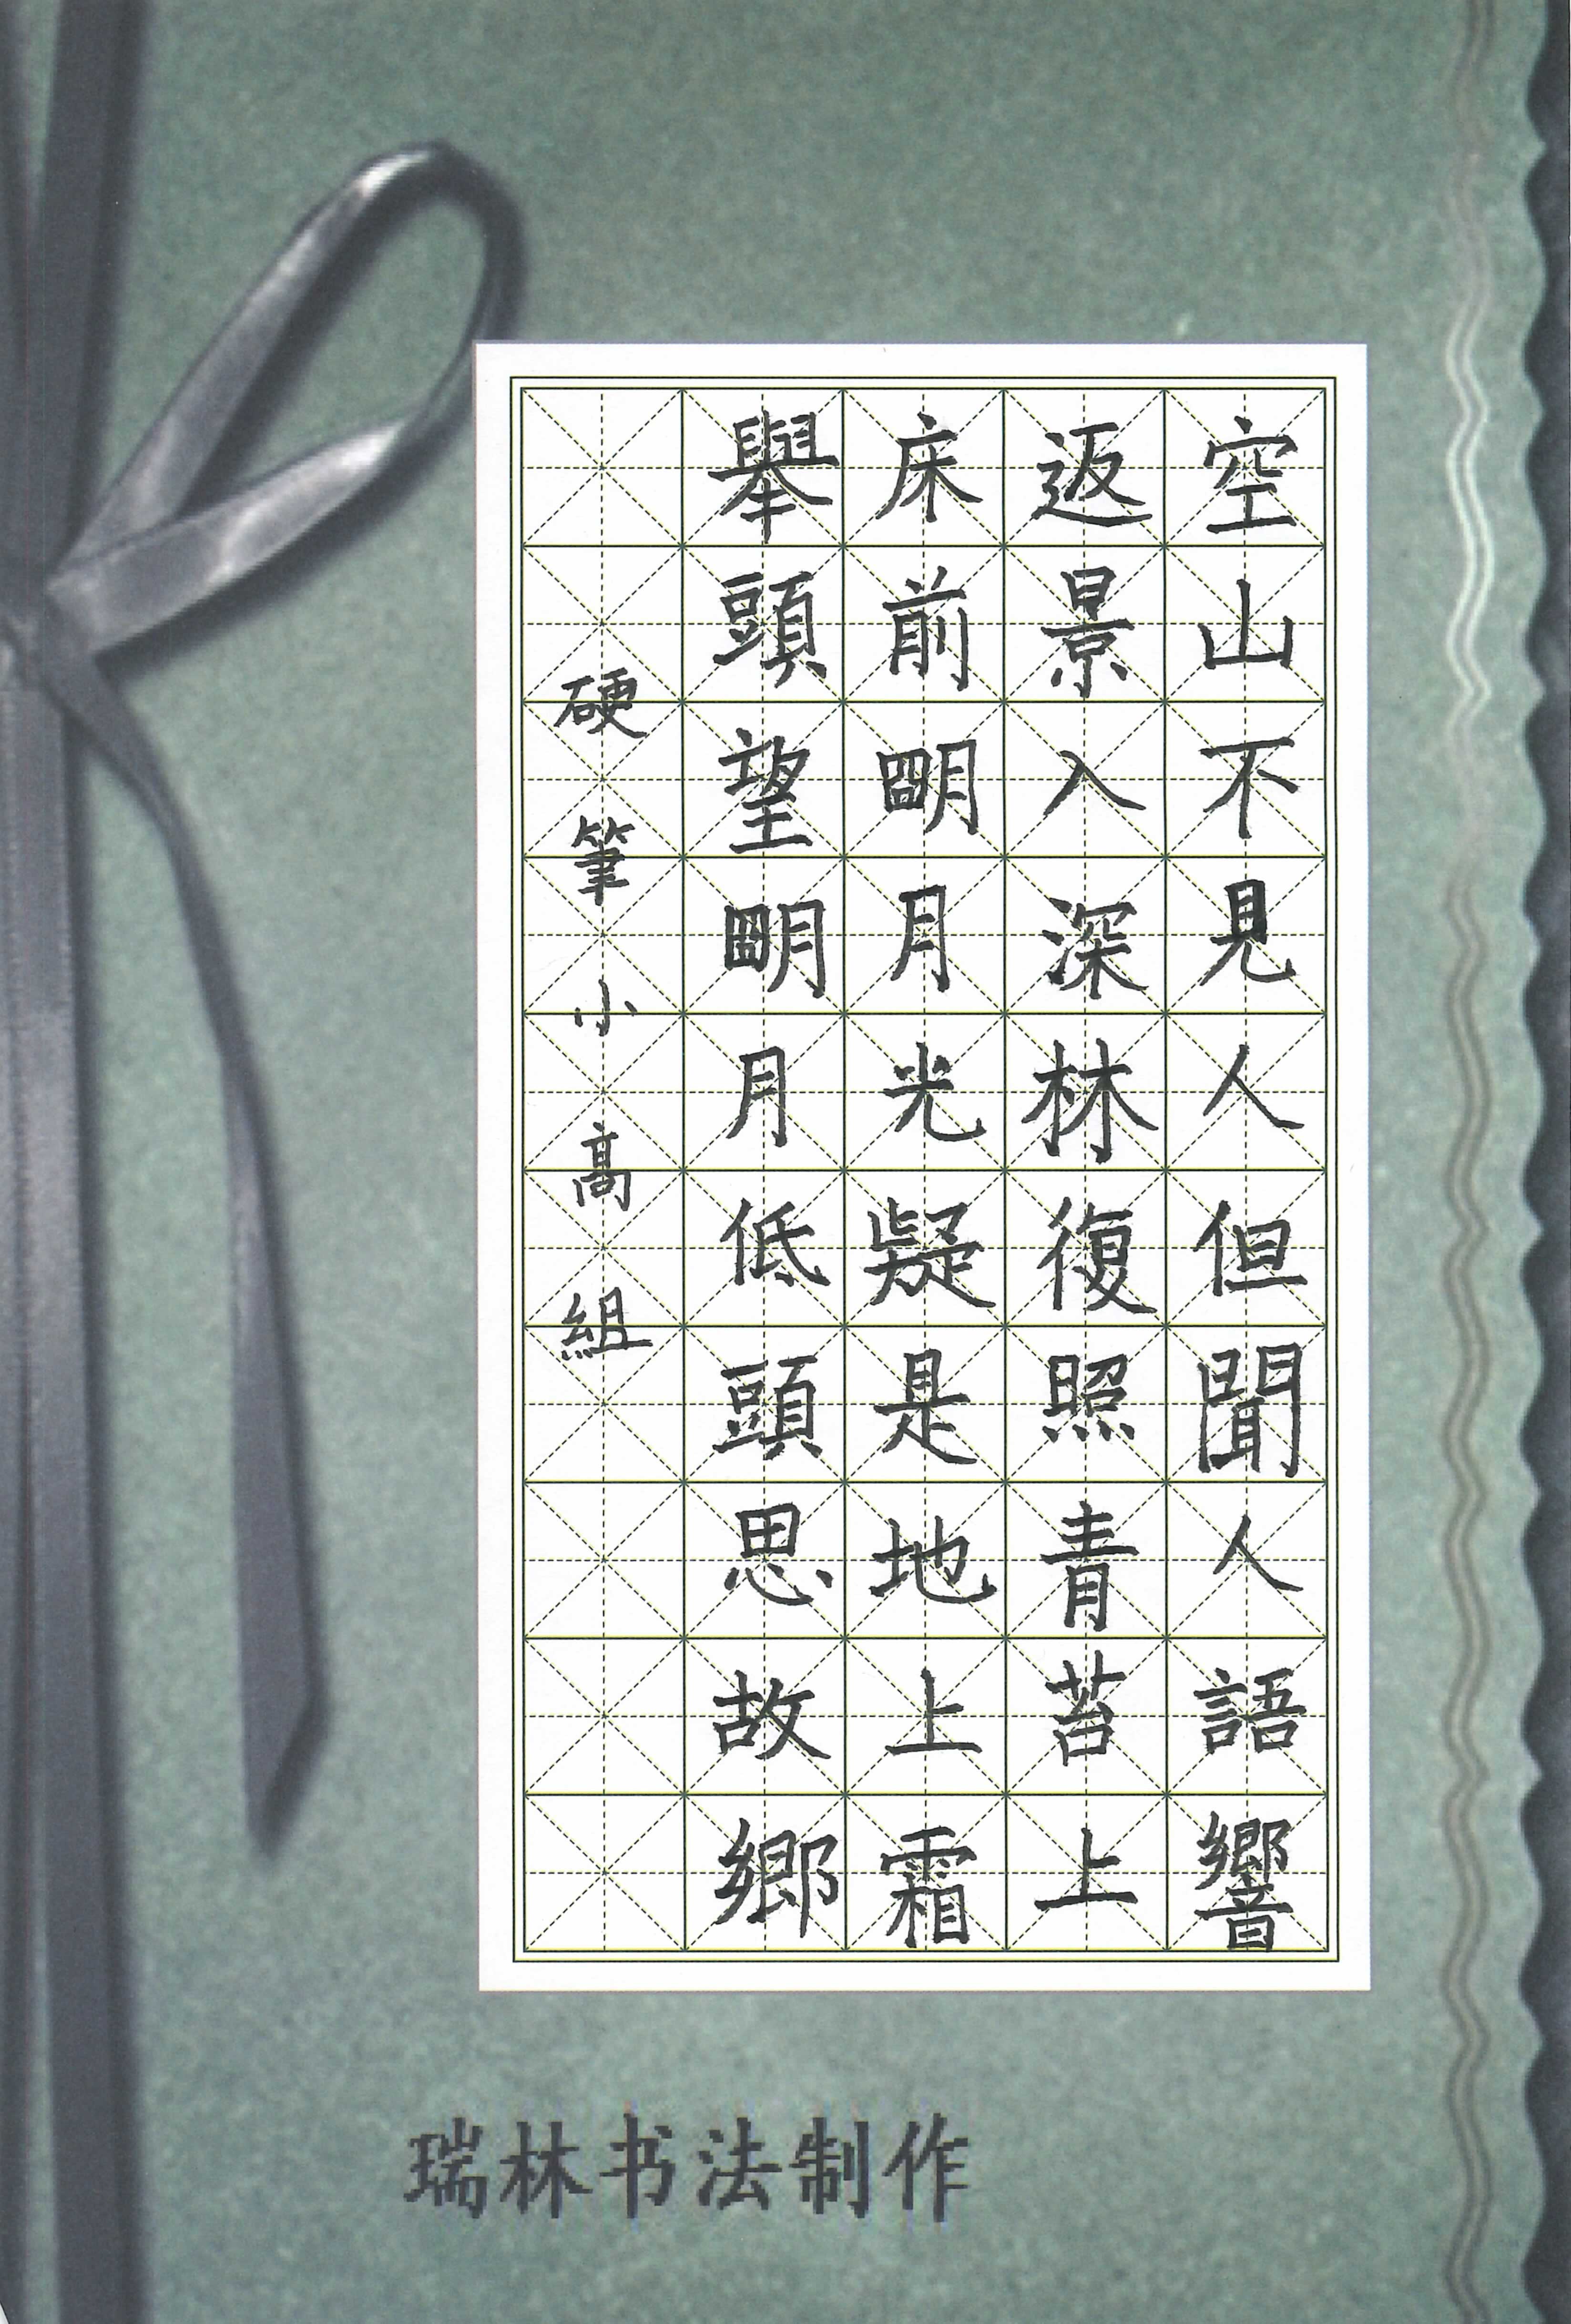 空山不見人但聞人語響
返景入深林復照青苔上
床前朙月光疑是地上霜
舉頭望朙月低頭思故鄉
硬筆小高組
瑞林书法制作